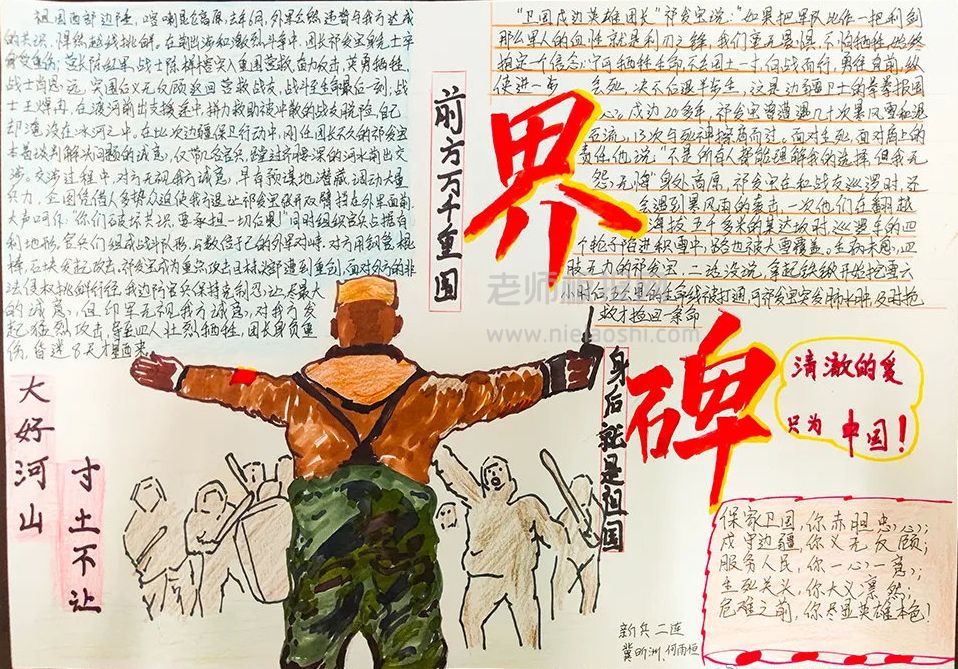 祖国西部边陲,喀喇昆仑高原,去年6月,外军公然违背与我方达成
的共识,悍然越线挑衅。在前出涉和激烈斗争中,团长祁发宝身先士卒
营长陈红军、战士陈祥榕突入重围营救,奋力反击,英勇牺牲。
战士肖思远,突围后义无反顾返回营救战友,战斗至生命最后一刻,战
士王焯冉,在渡河前出支援途中,拼力救助被冲散的战友脱险,自己
却淹没在冰河之中。在此次边疆保卫行动中,刚任团长不久的祁发宝
本着谈判解决问题的诚意,仅带几名官兵,蹚过齐腰深的河水前出交
涉。交涉过程中,对方无视我方诚意,早有预谋地潜藏、调动大量
兵力,企图凭借人多势众迫使我方退让,祁发宝张开双臂挡在外军面前,
大声呵斥:"你们破坏共识,要承担一切后果!"同时组织官兵占据有
利地形,官兵们组成战斗队形,与数倍于己的外军对峙,对方用钢管、棍
棒、石块发起攻击,祁发宝成为重点攻击目标,头部遭到重创,面对外方的非
法侵权挑衅行径,我边防官兵保持克制忍让,尽最大
的诚意,但印军无视我方诚意,对我方发
起猛烈攻击,导致四人壮烈牺牲,团长身负重
伤,昏迷8天才醒过来。
前方万千重围
"卫国戍边英雄团长"祁发宝说:"如果把军队比作一把利剑
那么军人的血性就是利刃之锋,我们毫无畏惧,不怕牺牲,始终
抱定一个信念:宁可牺牲生命,不丢国土一寸,向战而行,勇往直前,纵
使进一步 会死,决不后退半步生,这是边疆卫士的拳拳报国
心。戍边20多年,祁发宝曾遭遇几十次暴风雪和泥
石流,13次与死神擦肩而过。面对生死,面对肩上的
责任,他说:"不是所有人都能理解我的选择,但我无
怨无悔"身处高原,祁发宝在和战友巡逻时,还
会遇到暴风雨的袭击,一次他们在翻越
海拔五千多米的某达坂时,巡逻车的四
个轮子陷进积雪中,路也被大雪覆盖。生病未愈、四
肢无力的祁发宝,二话没说,拿起铁锹开始挖雪,六
小时后,这里的生命线被打通,可祁发宝突发肺水肿,及时抢
救才捡回一条命
界
碑
老师
www.nielaoshi.com
身后就是祖国
清澈的爱
只为 中国!
大好河山
寸土不让
保家卫国,你赤胆忠心;
戍守边疆,你义无反顾;
服务人民,你一心一意;
生死关头,你大义凛然;
危难之前,你尽显英雄本色!
新兵二连
冀昕洲、何雨恒